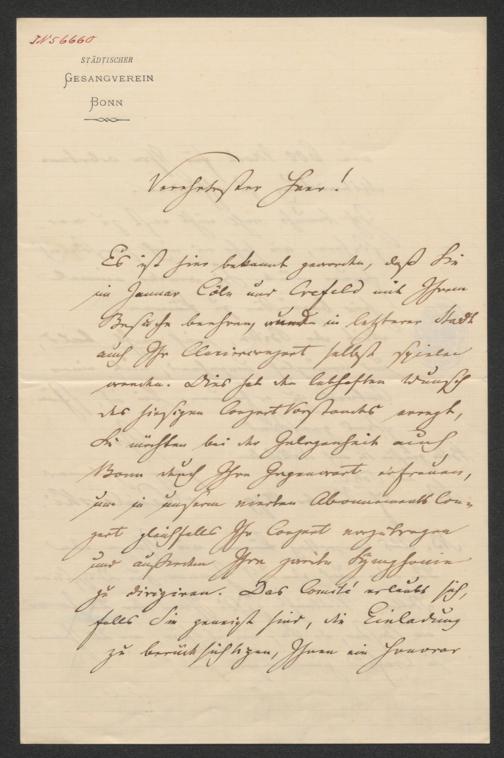 JN 56660
STÄDTISCHER
GESANGVEREIN
BONN
Verehrtester Herr!
Es ist hier bekannt geworden, daß Sie
im Januar Cöln und Crefeld mit Ihrem
Besuche beehren, und in letzterer Stadt
auch Ihr Clavierconzert selbst spielen
werden. Dies hat den lebhaften Wunsch
des hiesigen Conzertvorstandes erregt,
Sie möchten bei der Gelegenheit auch
Bonn durch Ihre Gegenwart erfreuen,
um in unserm vierten Abonnements Con-
zert gleichfalls Ihr Conzert vorzutragen
und außerdem Ihre zweite Symphonie
zu dirigiren. Das Comité erlaubt sich,
falls Sie geneigt sind, die Einladung
zu berücksichtigen, Ihnen ein Honorar